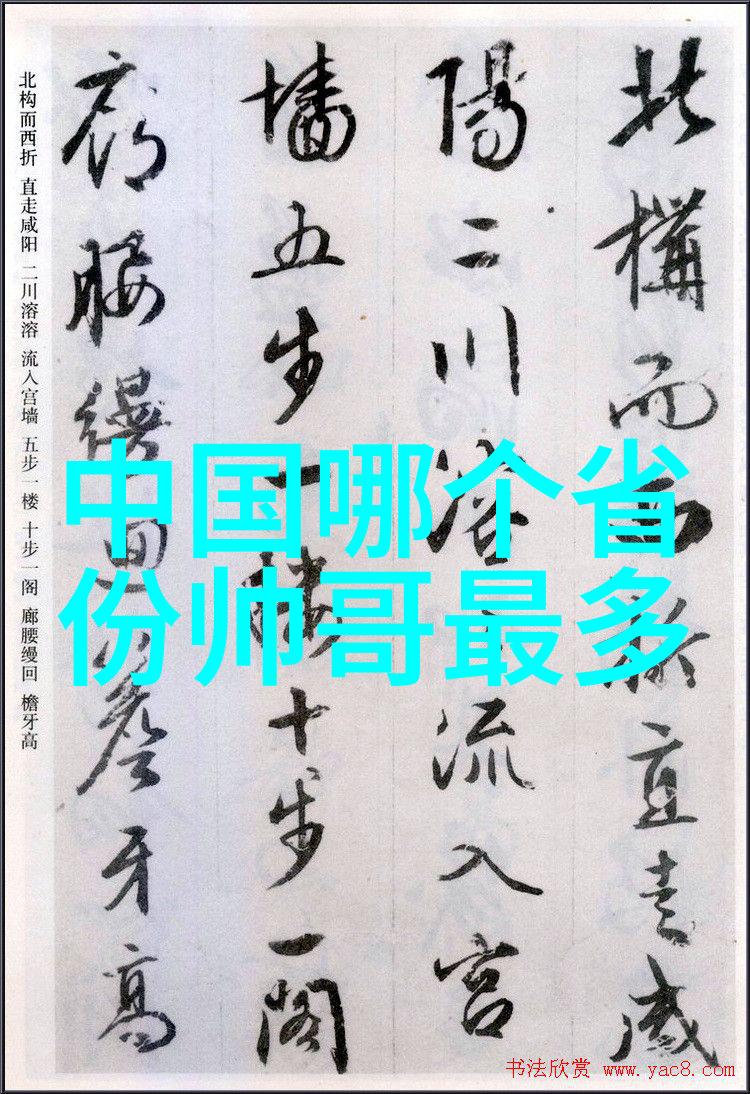 中国哪个省
份帅哥最多
北構而西折直走咸
陽二川溶々流入宮
墻五步一樓十步一閣
廊腰縵迴簷牙高
北构而西折 直走咸阳 二川溶溶 流入宫墙 五步一楼 十步一阁 廊腰缦回 檐牙高
书法欣赏 www.yac8.com